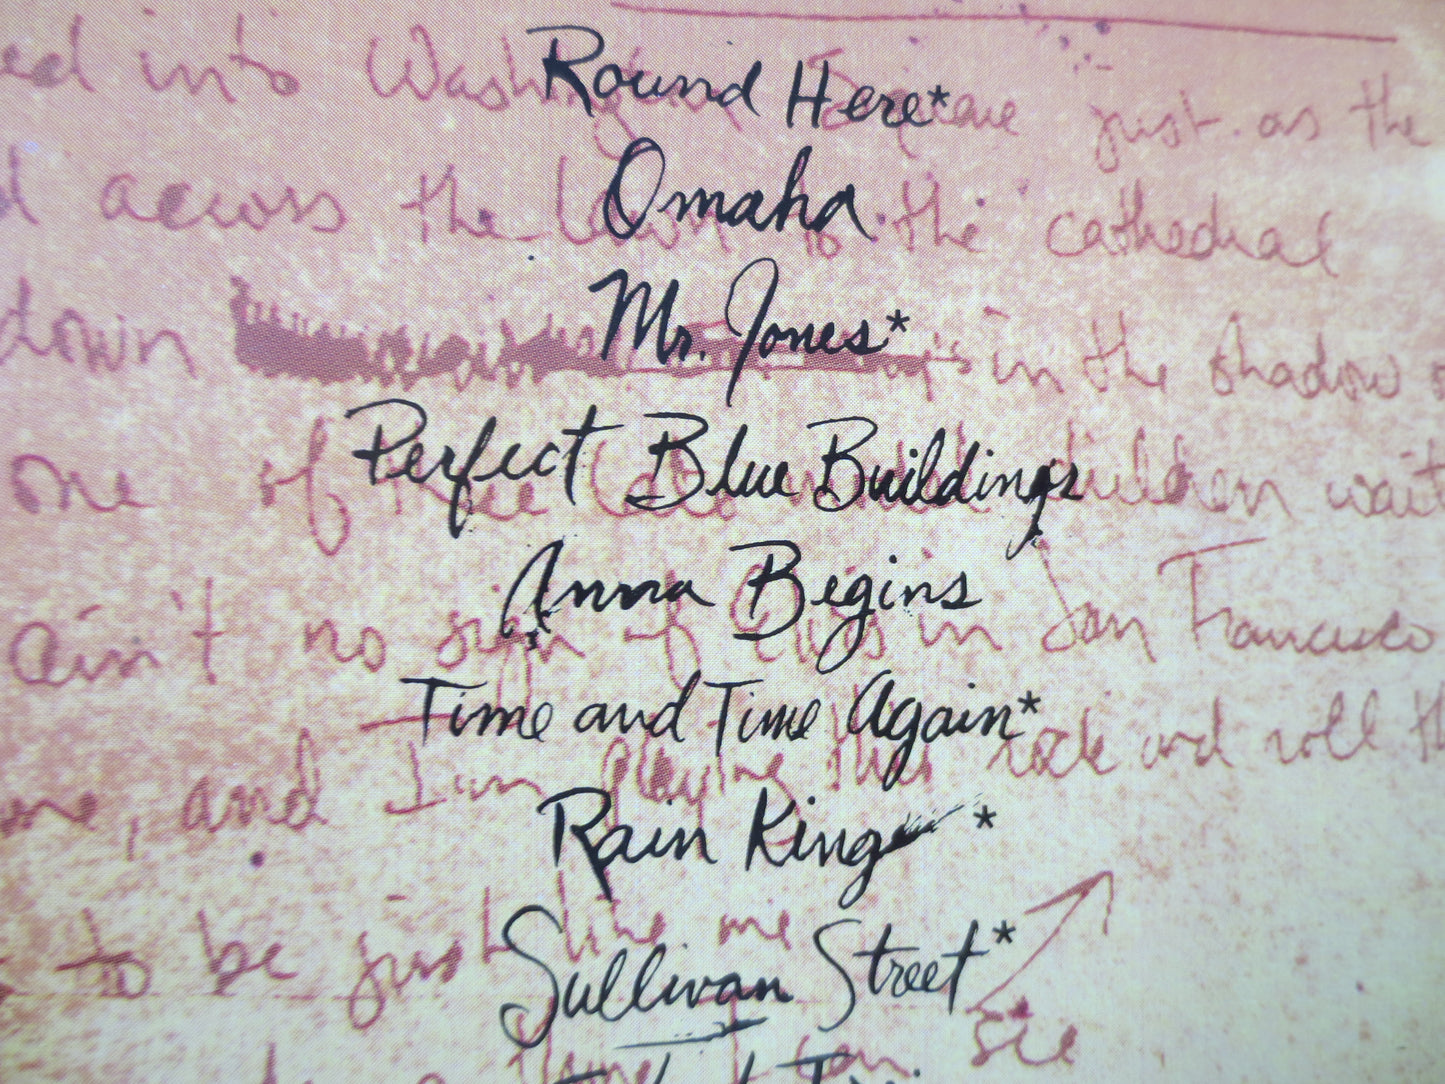 Round Here*
Omaha
Mr. Jones*
Perfect Blue Buildings
Anna Begins
Time and Time Again*
Rain King *
Sullivan Street*
into Washington Square just as the
across the lawn to the cathedral
down in the shadow
one of children wait
ain't no sign of in San Francisco
and I'm playing this rock and roll
to be just like me
see